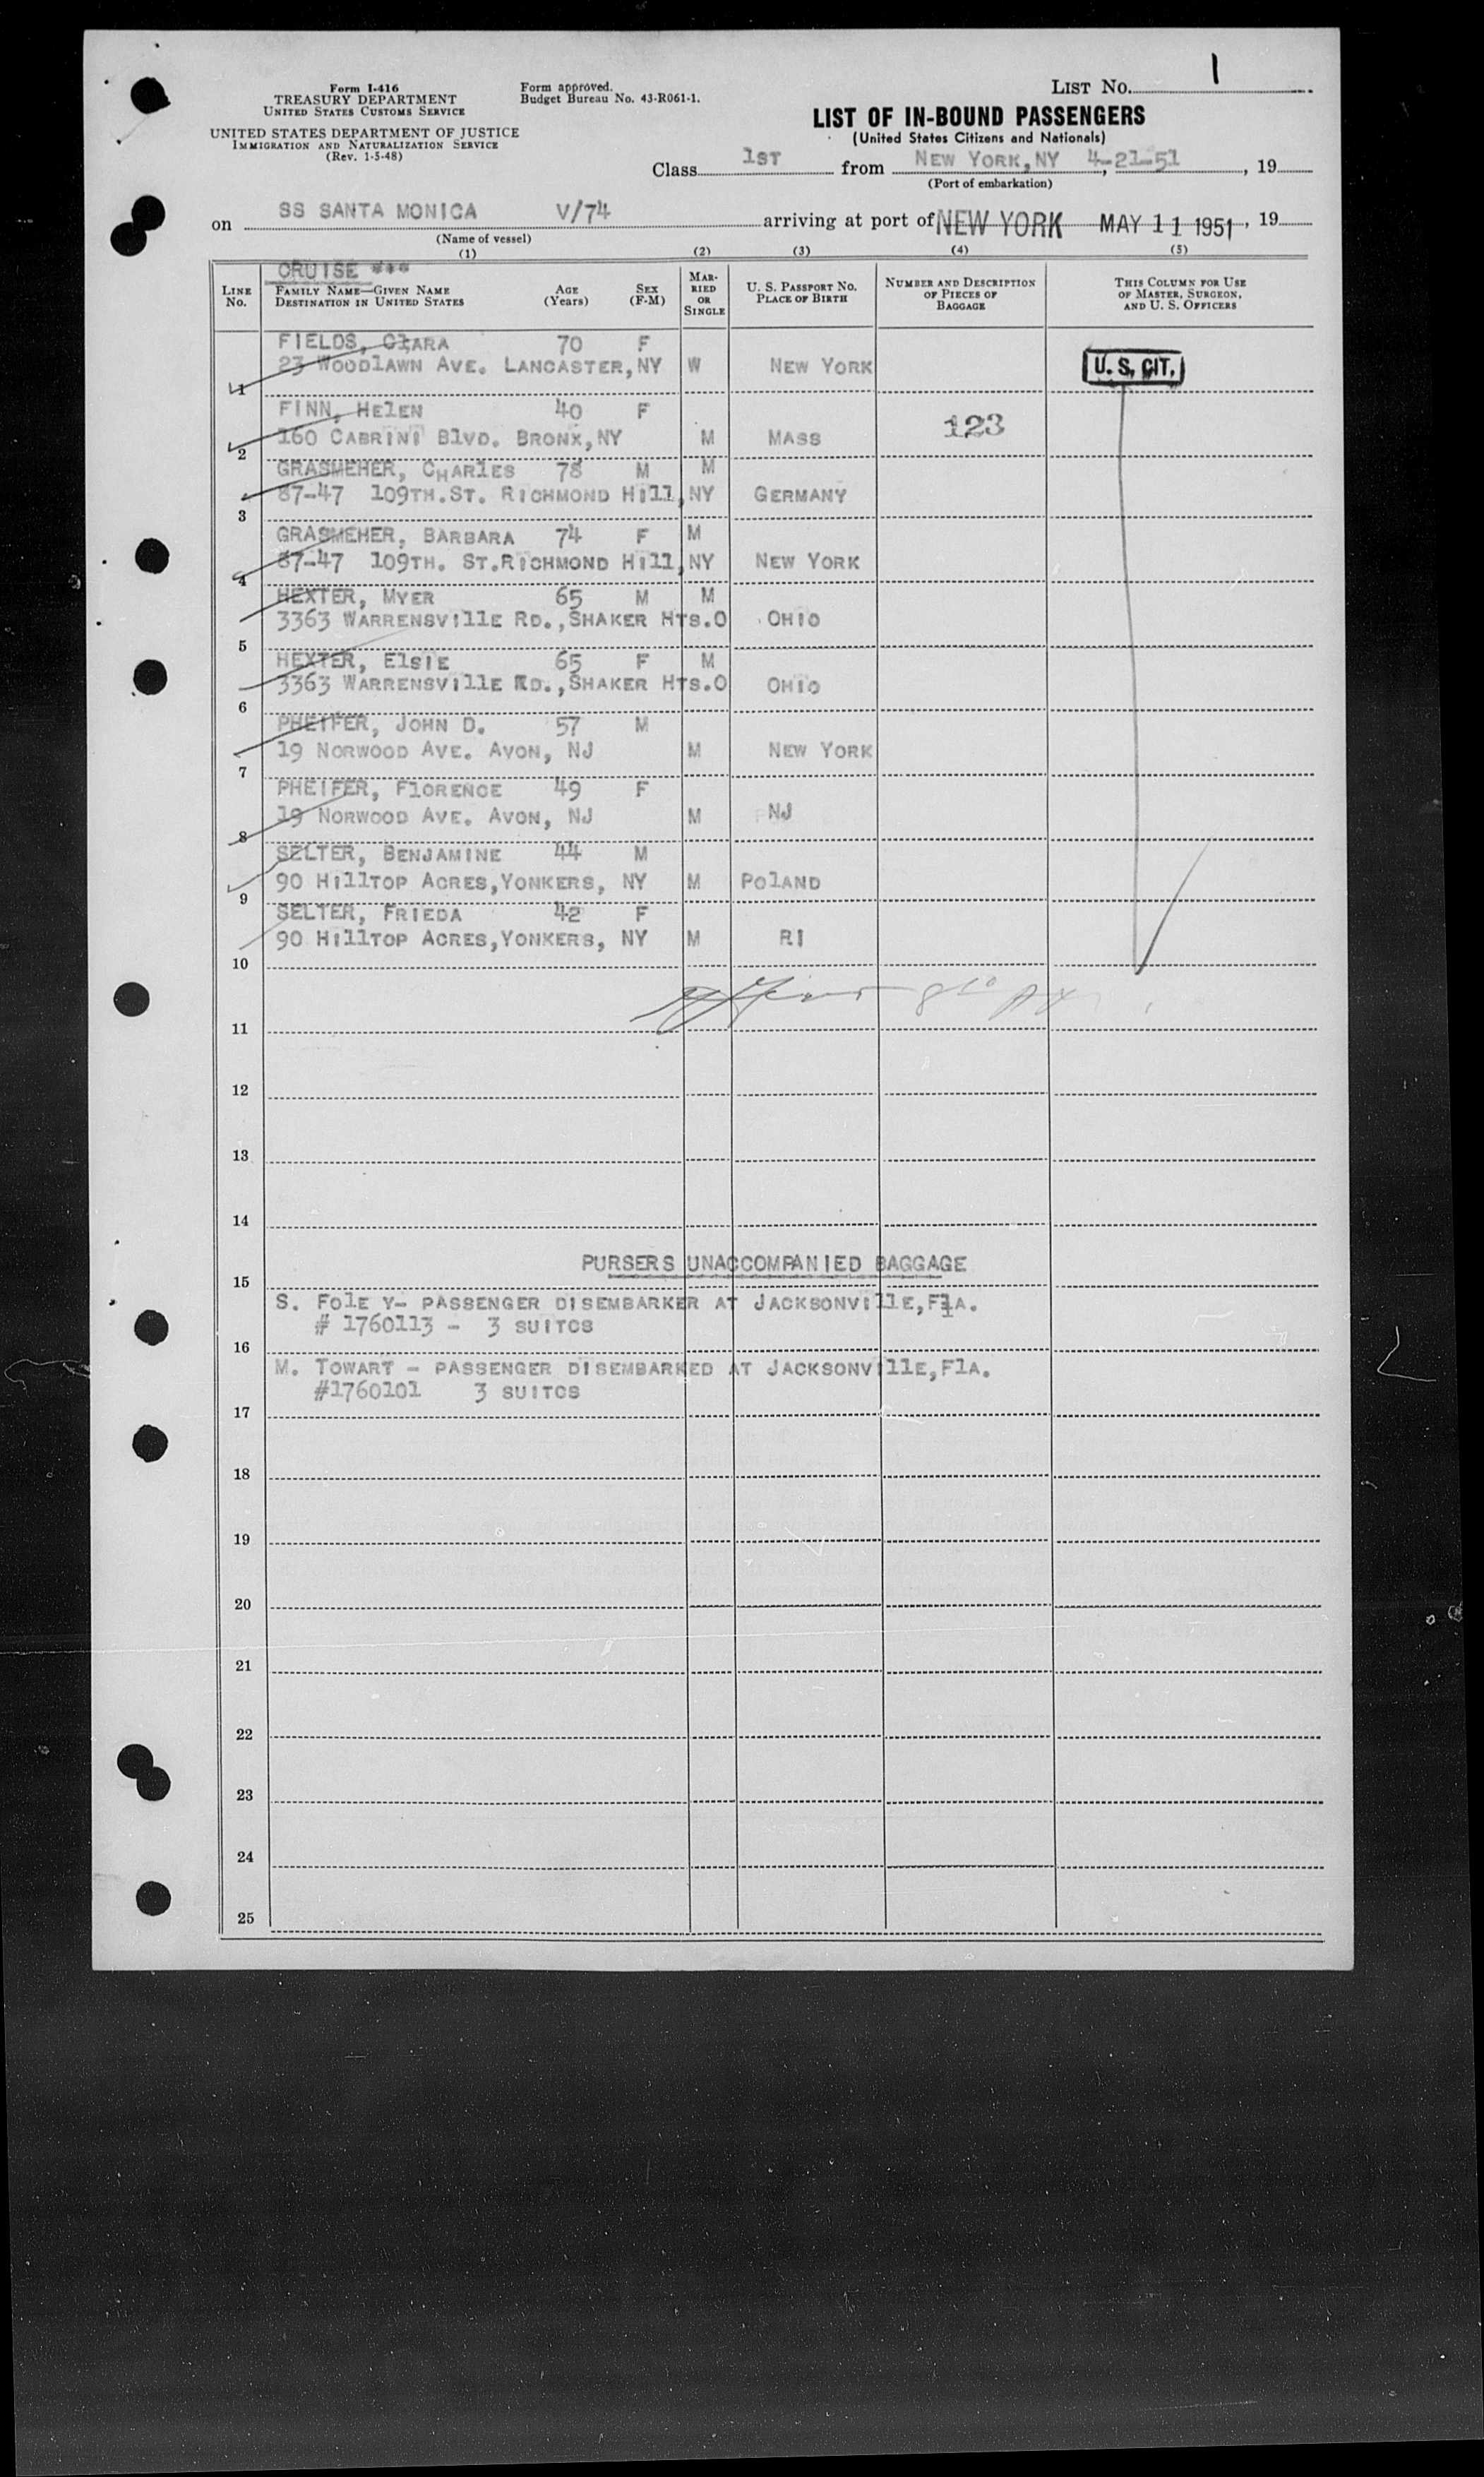 Form I-416
TREASURY DEPARTMENT
UNITED STATES CUSTOMS SERVICE
UNITED STATES DEPARTMENT OF JUSTICE
IMMIGRATION AND NATURALIZATION SERVICE
(Rev. 1-5-48)
Form approved.
Budget Bureau No. 43-R061-1.
LIST NO. 1
LIST OF IN-BOUND PASSENGERS
(United States Citizens and Nationals)
Class 1ST from NEW YORK, NY 4-21-51, 19
(Port of embarkation)
on SS SANTA MONICA V/74 arriving at port of NEW YORK MAY 11 1951, 19
(Name of vessel)
(1) (2) (3) (4) (5)
CRUISE ***
LINE No. FAMILY NAME—GIVEN NAME DESTINATION IN UNITED STATES AGE (Years) SEX (F-M) MARRIED OR SINGLE U. S. PASSPORT NO. PLACE OF BIRTH NUMBER AND DESCRIPTION OF PIECES OF BAGGAGE THIS COLUMN FOR USE OF MASTER, SURGEON, AND U. S. OFFICERS
FIELDS, ClARA 70 F
23 WOODlAWN AVE. LANCASTER, NY W NEW YORK U. S. CIT.
1
FINN, HElEN 40 F
160 CABRINI BlVD. BRONX, NY M MASS 123
2
GRASMEHER, CHARlES 78 M M
87-47 109TH.ST. RICHMOND Hill, NY GERMANY
3
GRASMEHER, BARBARA 74 F M
87-47 109TH. ST.RICHMOND Hill, NY NEW YORK
4
HEXTER, MYER 65 M M
3363 WARRENSVIllE RD., SHAKER HTS.O OHIO
5
HEXTER, ElSIE 65 F M
3363 WARRENSVIllE RD., SHAKER HTS.O OHIO
6
PHEIFER, JOHN D. 57 M
19 NORWOOD AVE. AVON, NJ M NEW YORK
7
PHEIFER, FlORENCE 49 F
19 NORWOOD AVE. AVON, NJ M NJ
8
SELTER, BENJAMINE 44 M
90 HIllTOP ACRES, YONKERS, NY M POlAND
9
SELTER, FRIEDA 42 F
90 HIllTOP ACRES, YONKERS, NY M RI
10
11
12
13
14
PURSERS UNACCOMPANIED BAGGAGE
15
S. FOlE Y- PASSENGER DISEMBARKER AT JACKSONVIllE, FlA.
# 1760113 - 3 SUITCS
16
M. TOWART - PASSENGER DISEMBARKED AT JACKSONVIllE, FlA.
#1760101 3 SUITCS
17
18
19
20
21
22
23
24
25